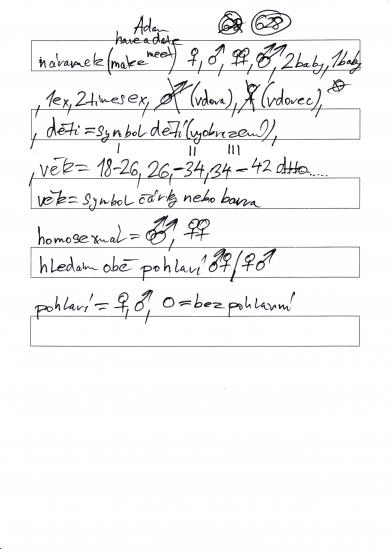 Adam 628
have a date
náramek (make meet) ♀, ♂, ♀♀, ♂♂, 2 baby, 1 baby
, 1 ex, 2 times ex, ♂ (vdova), ♀ (vdovec),
, děti = symbol dětí (vyobrazení),
I II III
, věk = 18-26, 26,-34, 34-42 .....
věk = symbol čárky nebo barva
homosexual = ♂♂, ♀♀
hledam obě pohlaví ♂♀/♀♂
pohlaví = ♀, ♂, O = bez pohlavní